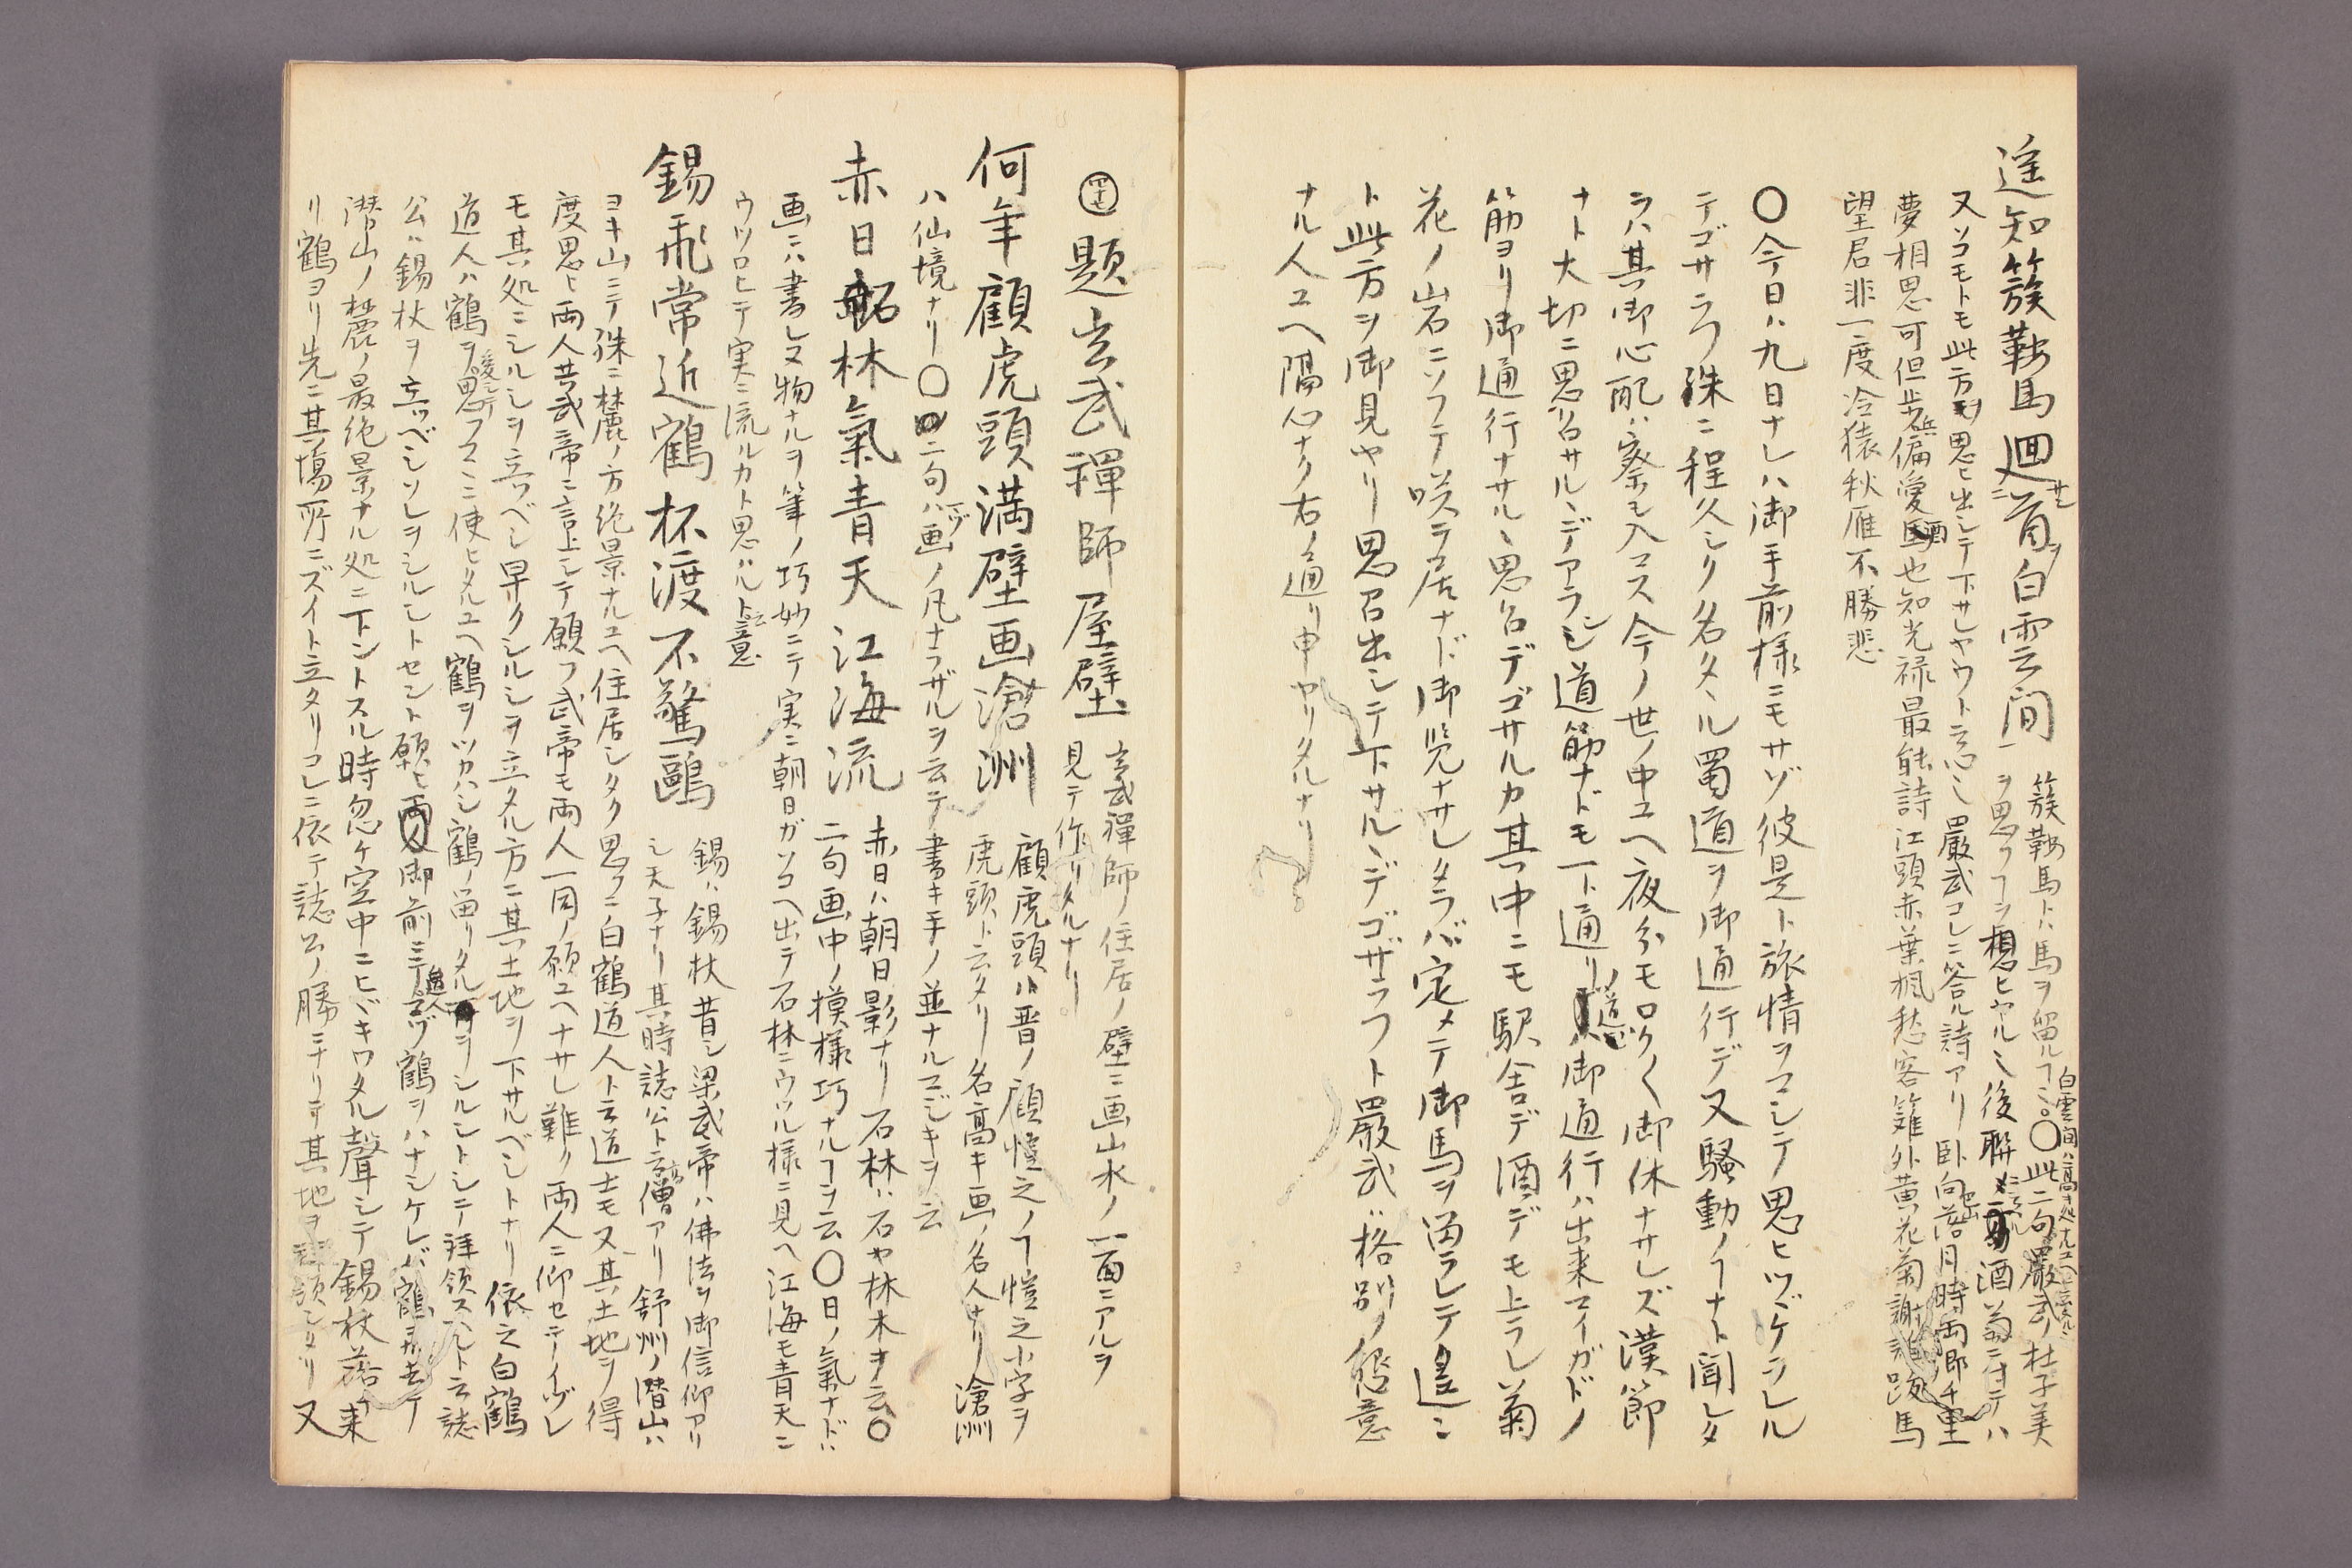 遥知簇鞍馬廻首白雲間
簇鞍馬トハ馬ヲ留ルヿ〇此二句嚴武ノ杜子美
ヲ思フヿヲ想ヒヤル後聯 酒翁ニ付テハ
又ソコモトモ此方ヲ思ヒ出シテ下サレヤウト云心 嚴武コレニ答ル詩アリ 臥向落月時両郷千里
夢相思可但歩 偏愛酒也知光禄最能詩 江頭赤葉楓愁客籬外黄花菊謝誰跂馬
望君非一度冷猿秋雁不勝悲
〇今日ハ九日ナレハ御手前様ニモサゾ彼是ト旅情ヲコシテ思ヒツヾケラレル
テゴサラフ殊ニ程久シク名タヽル蜀道ヲ御通行デ又騒動ノヿナト聞レタ
ラハ其御心配ハ察モ入マス今ノ世ノ中ユヘ夜分モロク〳〵御休ナサレズ漢節
ナト大切ニ思召サルヽデアラシ道筋ナドモ一ト通リ 御通行ハ出来マイガドノ
筋ヨリ御通行ナサルヽ思召デゴサルカ其中ニモ駅舎デ酒デモ上ラレ菊
花ノ岩ニソフテ咲テ居ナド御覧ナサレタラバ定メテ御馬ヲ留ラレテ遥ニ
ト此方ヲ御見ヤリ思召出シテ下サルヽデゴザラフト嚴武ハ格別ノ懇意
ナル人ユヘ隔心ナク右ノ通リ申ヤリタルナリ
題玄武禪師屋壁
玄武禪師ノ住居ノ壁ニ画山水ノ一面ニアルヲ
見テ作リタルナリ
何年顧虎頭満壁画滄洲
顧虎頭ハ晋ノ顧愷之ノヿ愷之小字ヲ
虎頭ト云タリ名高キ画ノ名人ナリ滄洲
ハ仙境ナリ〇二句ハマヅ画ノ凡ナラザルヲ云テ書キ手ノ並ナルマジキヲ云
赤日石林氣青天江海流
赤日ハ朝日影ナリ石林ハ石ヤ林木ヲ云〇
二句画中ノ模様巧ナルヿヲ云〇日ノ氣ナドハ
画ニハ書レヌ物ナルヲ筆ノ巧妙ニテ実ニ朝日ガソコヘ出テ石林ニウツル様ニ見ヘ江海モ青天ニ
ウツロヒテ実ニ流ルカト思ハルト云意
錫飛常近鶴杯渡不驚鷗
錫ハ錫杖昔シ梁武帝ハ佛法ヲ御信仰アリ
シ天子ナリ其時誌公ト云僧アリ舒州ノ潜山ハ
ヨキ山ニテ殊ニ麓ノ方絶景ナルユヘ住居シタク思フニ白鶴道人ト云道士モ又其土地ヲ得
度思ヒ両人共武帝ニ言上シテ願フ武帝モ両人一同ノ願ユヘナサレ難ク両人ニ仰セテイヅレ
モ其処ニシルシヲ立ツベシ早クシルシヲ立タル方ニ其土地ヲ下サルベシトナリ依之白鶴
道人ハ鶴ヲ思フマヽニ使ヒタルユヘ鶴ヲツカハシ鶴ノ留リタル ヲシルシトシテ拝領スベシト云誌
公ハ錫杖ヲ立ツベシソレヲシルシトセント願ヒ 御前ニテマヅ鶴ヲハナシケレバ鶴飛去テ
潜山ノ麓ノ最絶景ナル処ニ下ントスル時忽ケ空中ニヒヾキワタル聲シテ錫杖落来
リ鶴ヨリ先ニ其場所ニズイト立タリコレニ依テ誌公ノ勝ニナリテ其地ヲ拝領シタリ又